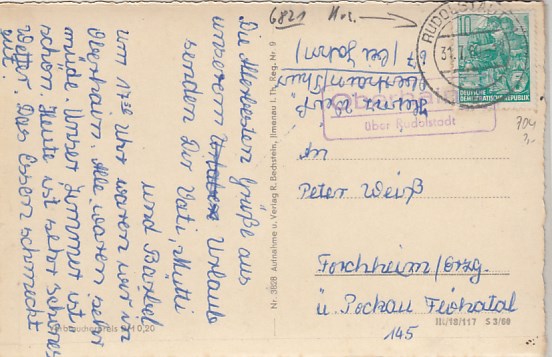 6821
Die Allerbesten Grüße aus
unserem Urlaub
senden Dir Vati, Mutti
und Bärbel
um 17 30 Uhr waren wir in
Oberhaim. Alle waren sehr
müde. Unser Zimmer ist
schön. Heute ist sehr schönes
Wetter. Das Essen schmeckt
gut.
Verbraucherpreis DM 0,20
Nr. 3828 Aufnahme u. Verlag R. Bechstein, Ilmenau i. Th. Reg. Nr. 9
RUDOLSTADT
31.7.
10
DEUTSCHE
DEMOKRATISCHE REPUBLIK
Weiß
(bei Jahn)
über Rudolstadt
704
An
Peter Weiß
Forchheim/Erzg.
ü Pockau Flöhatal
145
III/18/117 S 3/60